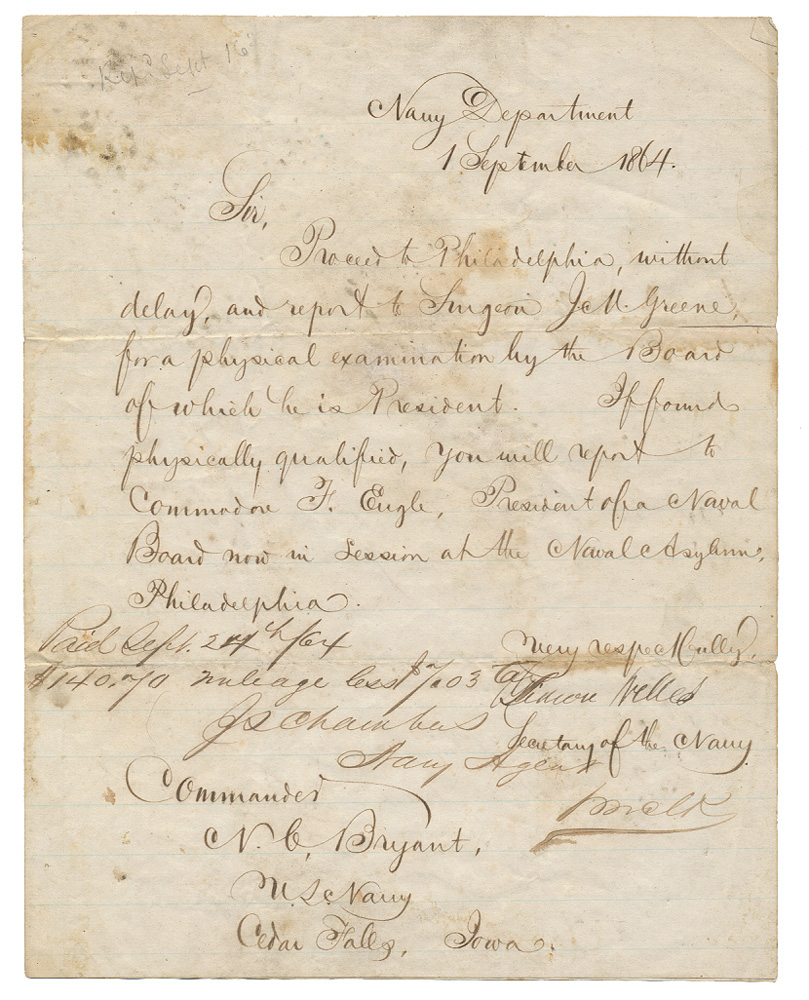 Rep. Sept. 16
Navy Department
1 September 1864.
Sir,
Proceed to Philadelphia, without
delay, and report to Surgeon J. M. Greene,
for a physical examination by the Board
of which he is President. If found
physically qualified, you will report to
Commodore F. Engle, President of a Naval
Board now in session at the Naval Asylum,
Philadelphia.
Very respectfully,
Paid Sept. 24th /64
$140.70 mileage less $7.03 tax
Gideon Welles
J S Chambers
Secretary of the Navy
Navy Agent
Commander
N. C. Bryant,
U. S. Navy
Cedar Falls, Iowa.